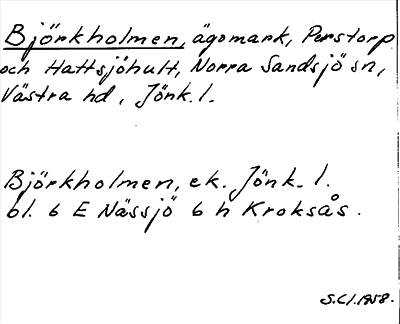 Björkholmen, ägomark, Perstorp
och Hattsjöhult, Norra Sandsjö sn,
Västra hd, Jönk. l.
Björkholmen, ek. Jönk. l.
bl. 6 E Nässjö 6 h Kroksås.
S.C.l. 1958.